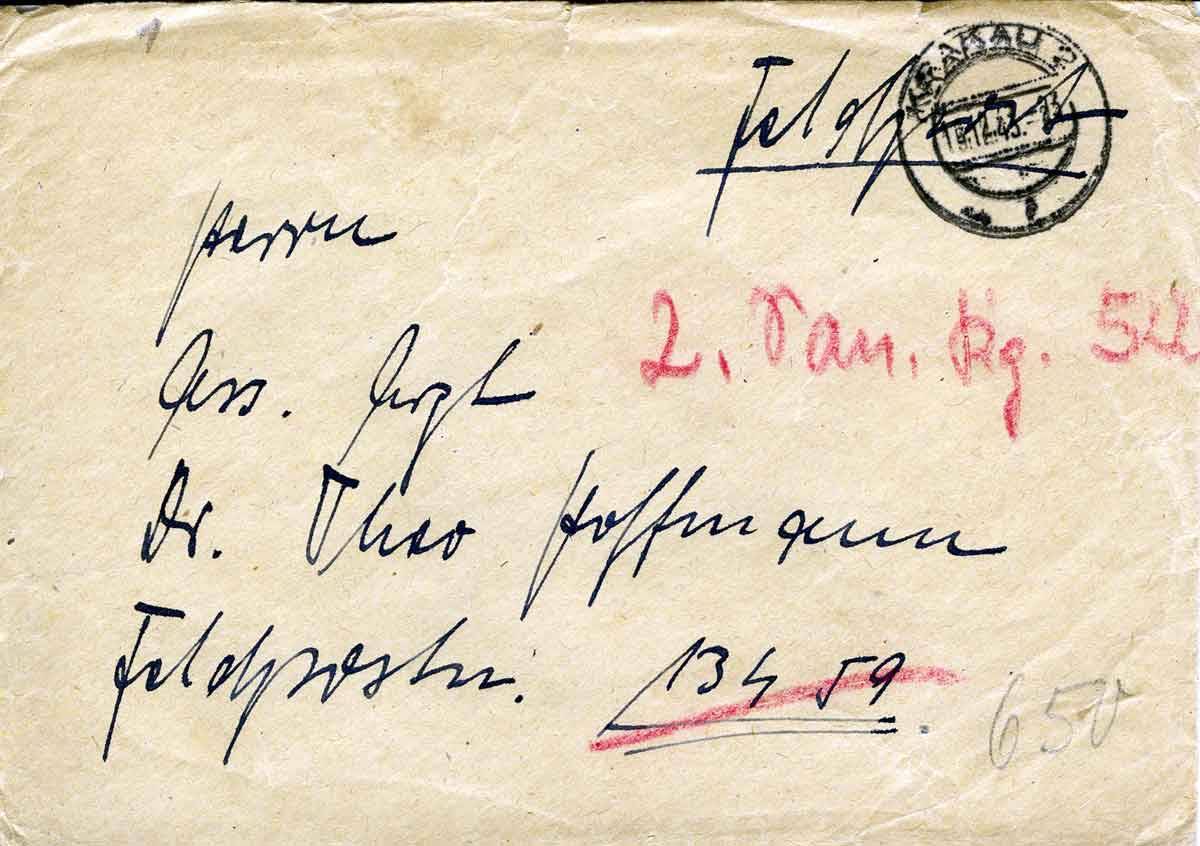 Feldpost
KRAKAU 2
19.12.43.-23
Herrn
2. San. Kg. 52
Ass. Arzt
Dr. Theo Hoffmann
Feldpostnr. 13459.
650